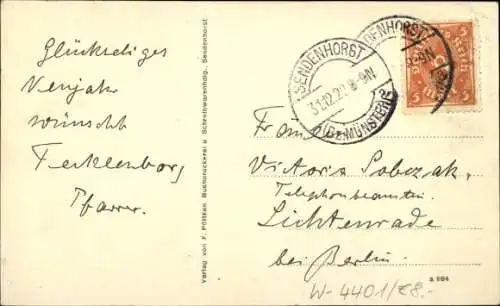 Glückseliges
Neujahr
wünscht
Tecklenborg
Pfarrer.
Verlag von F. Pöttken Buchdruckerei u. Schreibwarenhdlg., Sendenhorst
SENDENHORST
31.12.22 8-9N
(Bz. MÜNSTER)
DENHORST
8-9N
5 5
Victoria Sobczak,
Telephonbeamtin
Lichtenrade
bei Berlin.
W-4401/€8.-